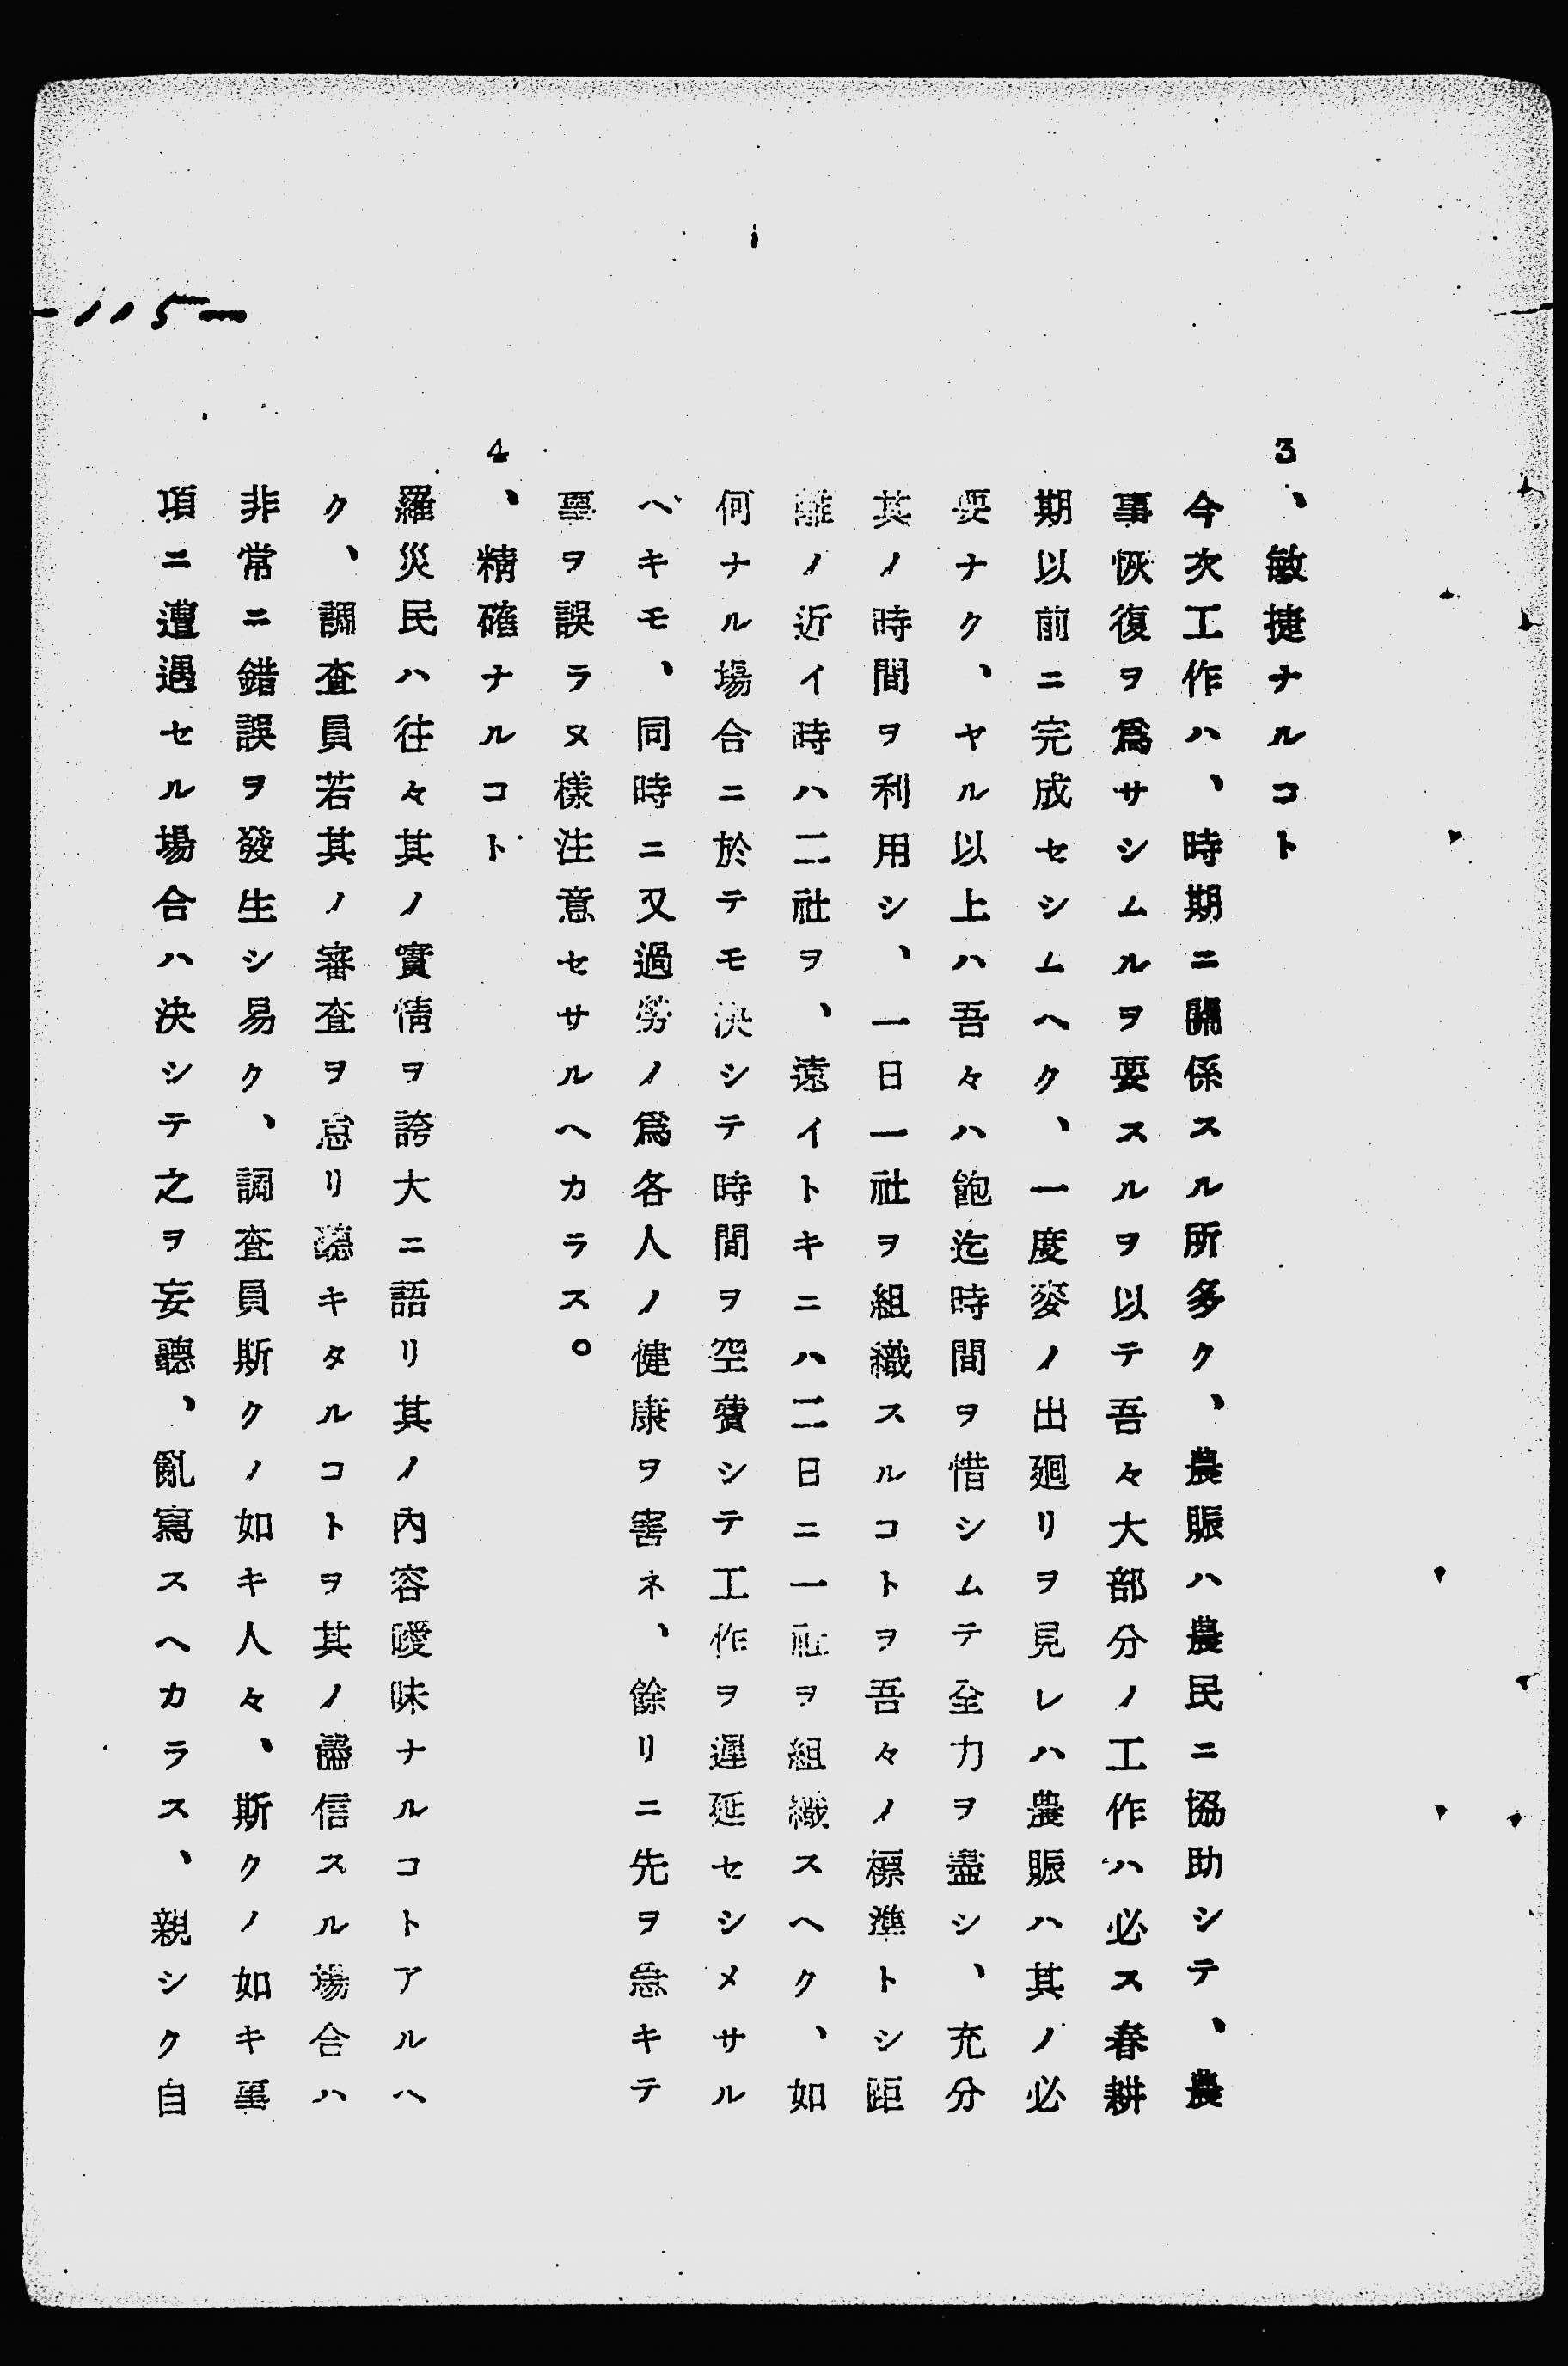 -115-
3、敏捷ナルコト
今次工作ハ、時期ニ關係スル所多ク、農賑ハ農民ニ協助シテ、農
事恢復ヲ爲サシムルヲ要スルヲ以テ吾々大部分ノ工作ハ必ス春耕
期以前ニ完成セシムヘク、一度麥ノ出廻リヲ見レハ農賑ハ其ノ必
要ナク、ヤル以上ハ吾々ハ飽迄時間ヲ惜シムテ全力ヲ盡シ、充分
其ノ時間ヲ利用シ、一日一社ヲ組織スルコトヲ吾々ノ標準トシ距
離ノ近イ時ハ二社ヲ、遠イトキニハ二日ニ一社ヲ組織スヘク、如
何ナル場合ニ於テモ決シテ時間ヲ空費シテ工作ヲ遲延セシメサル
ベキモ、同時ニ又過勞ノ爲各人ノ健康ヲ害ネ、餘リニ先ヲ急キテ
事ヲ誤ラヌ樣注意セサルヘカラス。
4、精確ナルコト
羅災民ハ往々其ノ實情ヲ誇大ニ語リ其ノ內容曖昧ナルコトアルヘ
ク、調査員若其ノ審査ヲ怠リ聽キタルコトヲ其ノ儘信スル場合ハ
非常ニ錯誤ヲ發生シ易ク、調査員斯クノ如キ人々、斯クノ如キ事
項ニ遭遇セル場合ハ決シテ之ヲ妄聽、亂寫スヘカラス、親シク自